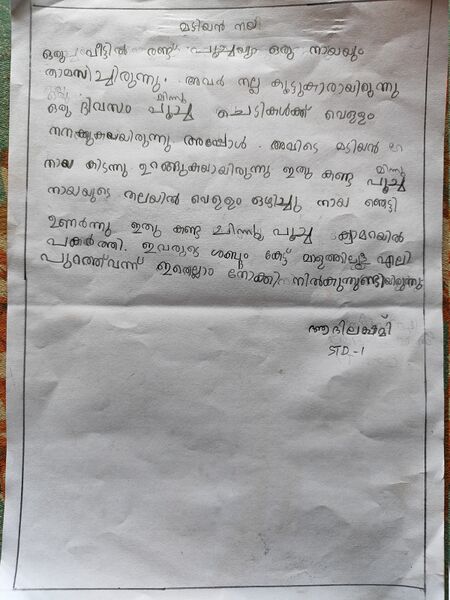 മടിയൻ നായ
ഒരു വീട്ടിൽ രണ്ട് പൂച്ചയും ഒരു നായയും
താമസിച്ചിരുന്നു. അവർ നല്ല കൂട്ടുകാരായിരുന്നു
മിന്നു
ഒരു ദിവസം പൂച്ച ചെടികൾക്ക് വെള്ളം
നനക്കുകയായിരുന്നു അപ്പോൾ. അവിടെ മടിയൻ
മിന്നു
നായ കിടന്നു ഉറങ്ങുകയായിരുന്നു ഇതു കണ്ട പൂച്ച
നായയുടെ തലയിൽ വെള്ളം ഒഴിച്ചു നായ ഞെട്ടി
ഉണർന്നു ഇതു കണ്ട ചിന്നു പൂച്ച ക്യാമറയിൽ
പകർത്തി. ഇവരുടെ ശബ്ദം കേട്ട് മാളത്തിലുള്ള എലി
പുറത്ത് വന്ന് ഇതെല്ലാം നോക്കി നിൽക്കുന്നുണ്ടായിരുന്നു
ആദിലക്ഷ്മി
STD-1